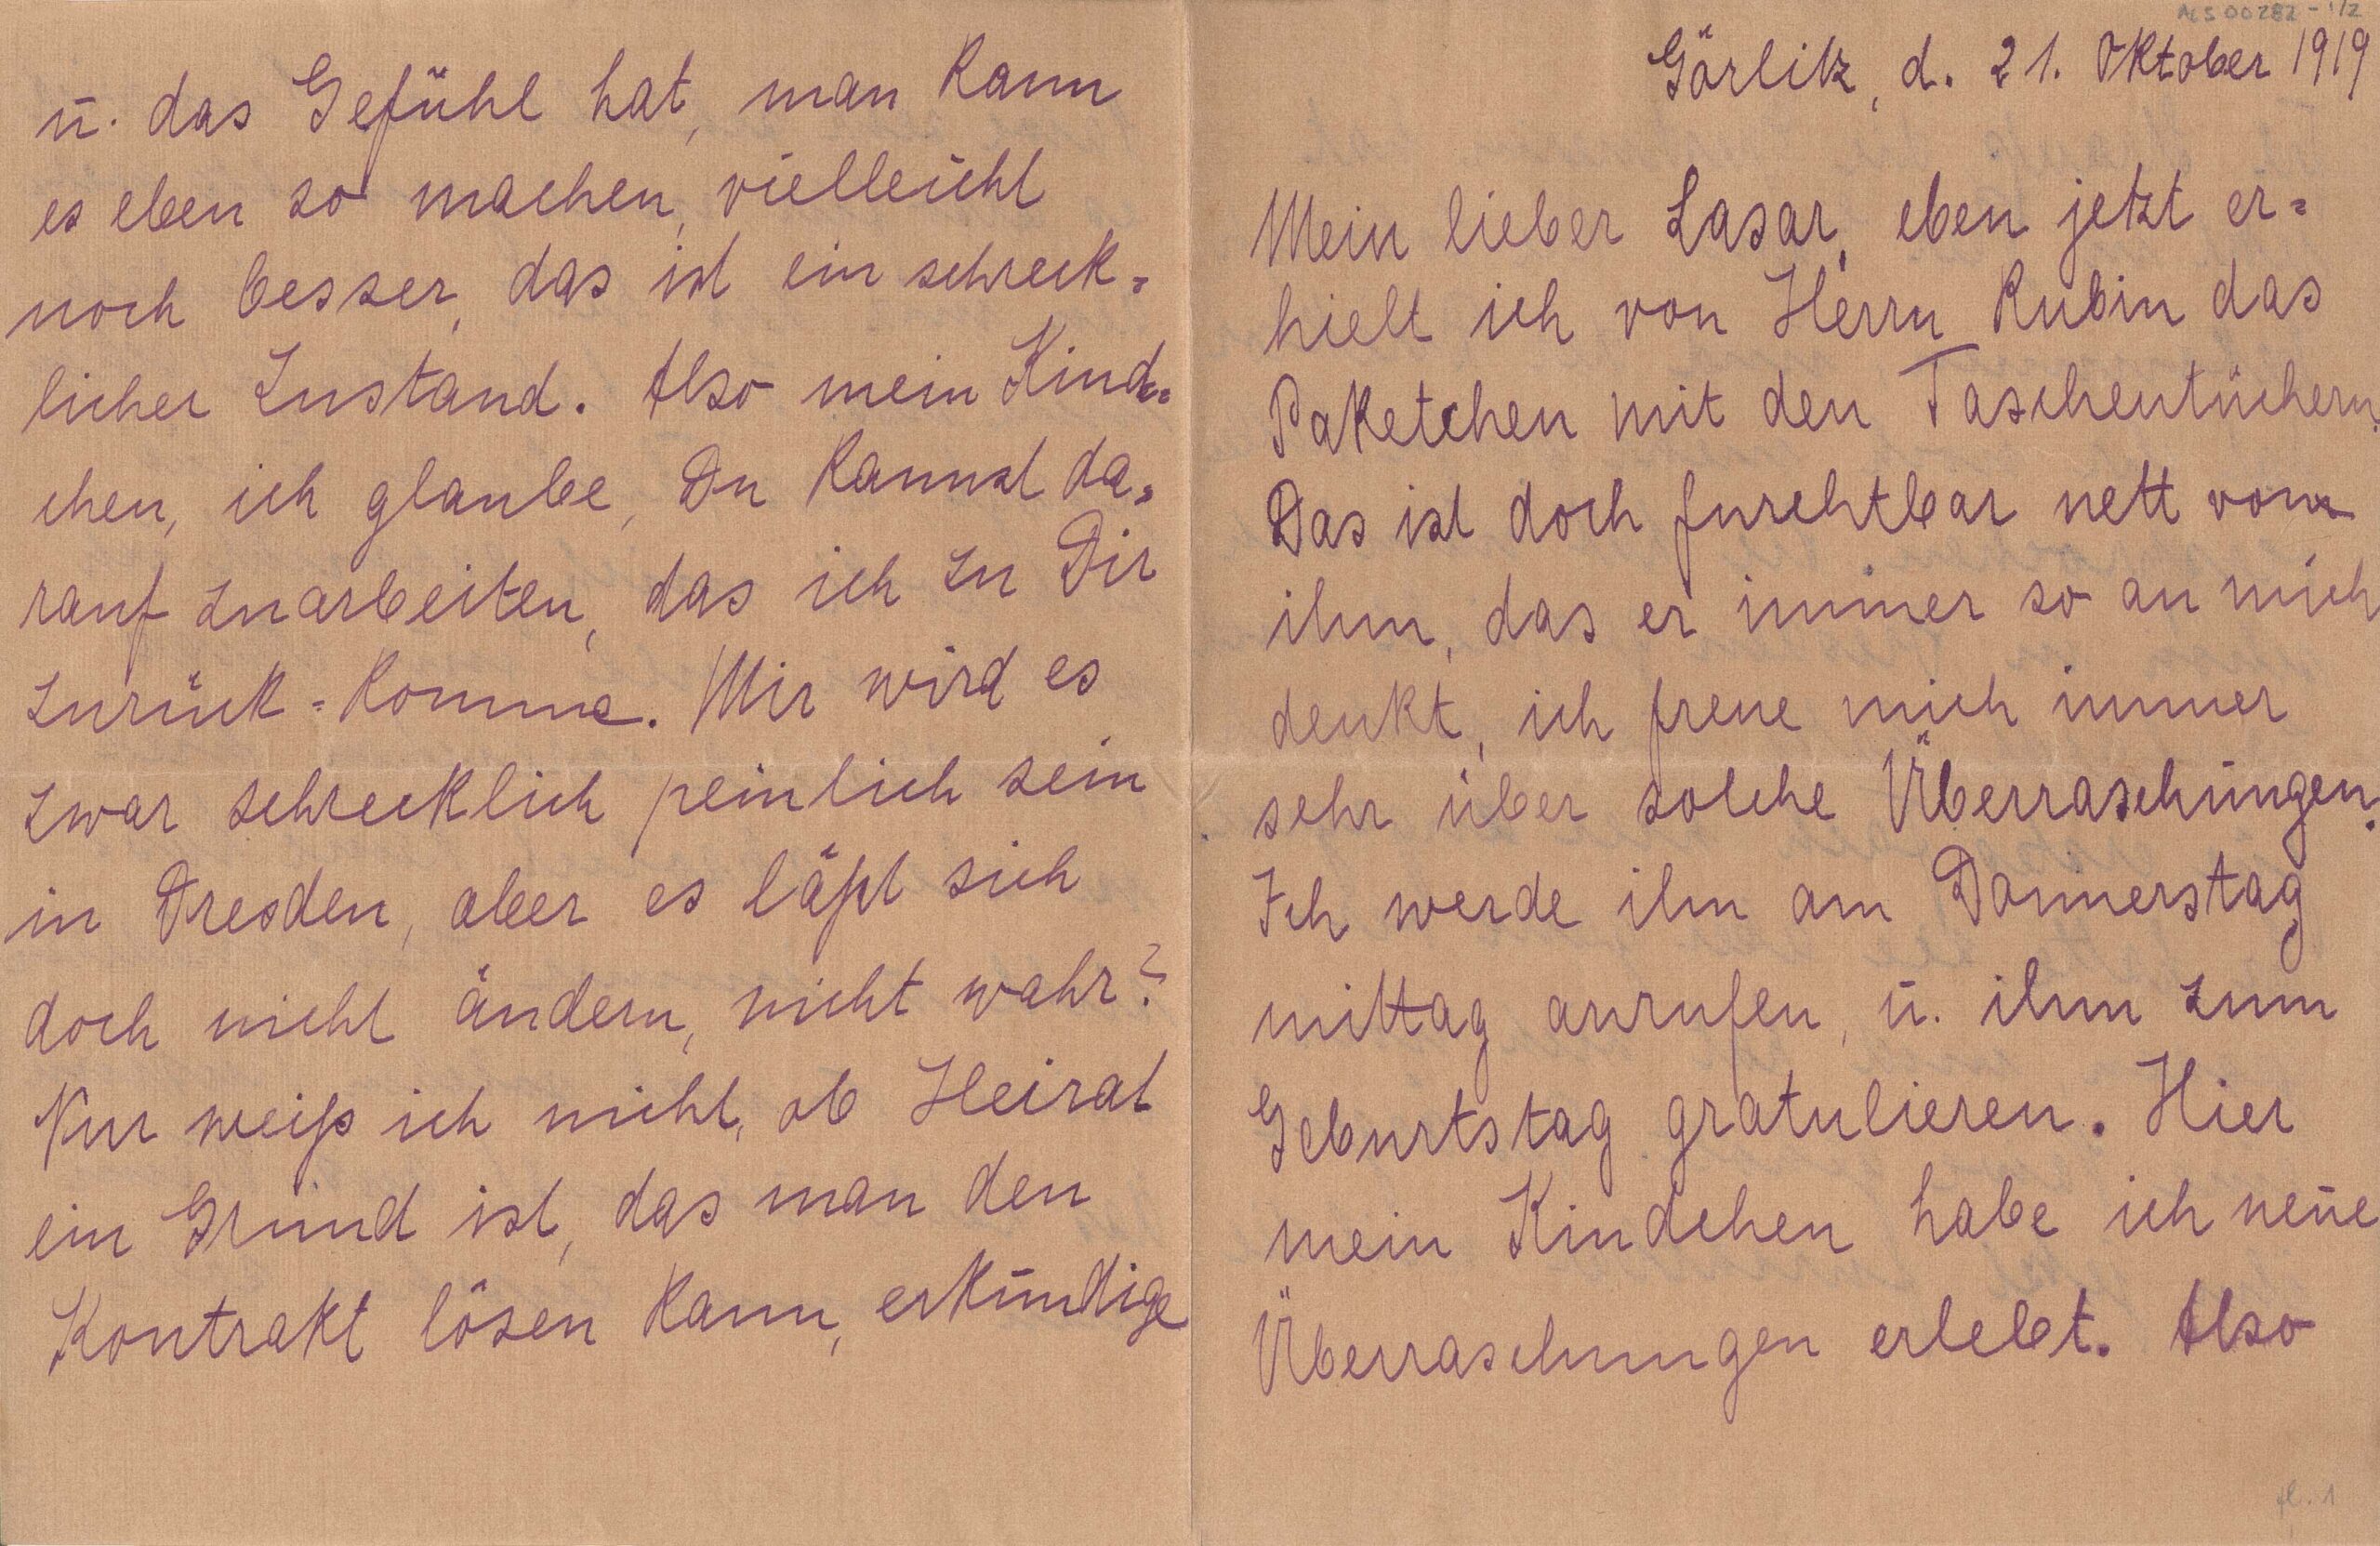 MLS 00282 - 1/2
Görlitz, d. 21. Oktober 1919
Mein lieber Lasar, eben jetzt er=
hielt ich von Herrn Rubin das
Paketchen mit den Taschentüchern.
Das ist doch furchtbar nett von
ihm, das er immer so an mich
denkt, ich freue mich immer
sehr über solche Überraschungen.
Ich werde ihn am Donnerstag
mittag anrufen, u. ihm zum
Geburtstag gratulieren. Hier
mein Kindchen habe ich neue
Überraschungen erlebt. Also
fl. 1
u. das Gefühl hat, man kann
es eben so machen, vielleicht
noch besser, das ist ein schreck=
licher Zustand. Also mein Kind=
chen, ich glaube, Du kannst da=
rauf zuarbeiten, das ich zu Dir
zurück=komme. Mir wird es
zwar schrecklich peinlich sein
in Dresden, aber es läßt sich
doch nicht ändern, nicht wahr?
Nur weiß ich nicht, ob Heirat
ein Grund ist, das man den
Kontrakt lösen kann, erkundige